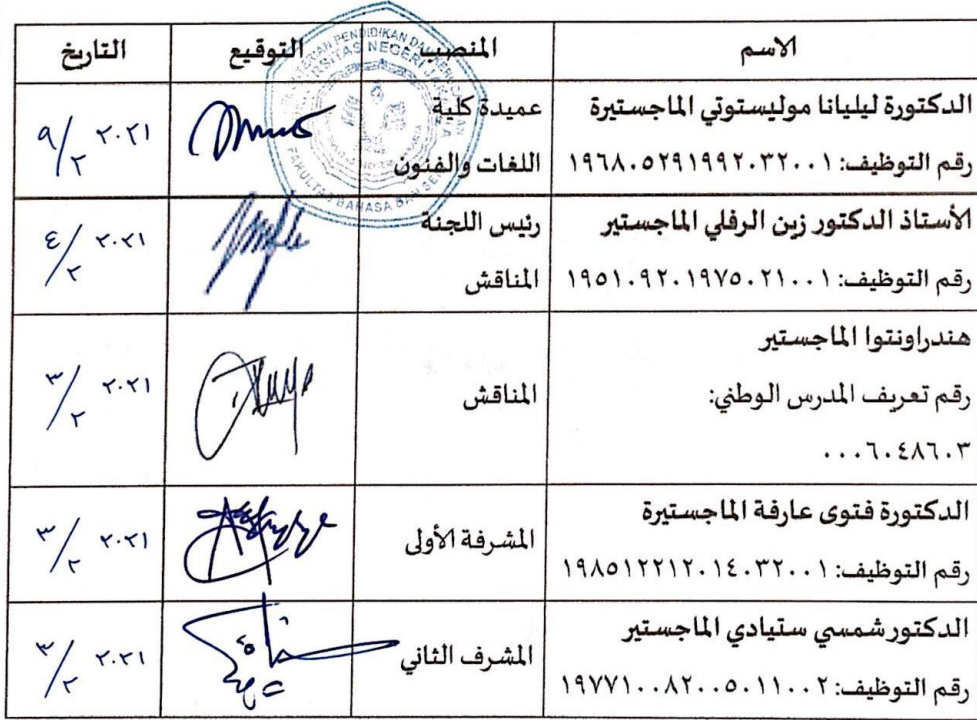 الاسم المنصب التوقيع التاريخ
الدكتورة ليليانا موليستوتي الماجستيرة
رقم التوظيف: ١٩٦٨٠٥٢٩١٩٩٢٠٣٢٠٠١
عميدة كلية
اللغات والفنون
٢٠٢١ ٩/٢
الأستاذ الدكتور زين الرفلي الماجستير
رقم التوظيف: ١٩٥١٠٩٢٠١٩٧٥٠٢١٠٠١
رئيس اللجنة
المناقش
٢٠٢١ ٤/٢
هندراونتوا الماجستير
رقم تعريف المدرس الوطني:
٠٠٠٦٠٤٨٦٠٣
المناقش
٢٠٢١ ٣/٢
الدكتورة فتوى عارفة الماجستيرة
رقم التوظيف: ١٩٨٥١٢٢١٢٠١٤٠٣٢٠٠١
المشرفة الأولى
٢٠٢١ ٣/٢
الدكتور شمسي ستيادي الماجستير
رقم التوظيف: ١٩٧٧١٠٠٨٢٠٠٥٠١١٠٠٢
المشرف الثاني
٢٠٢١ ٣/٢